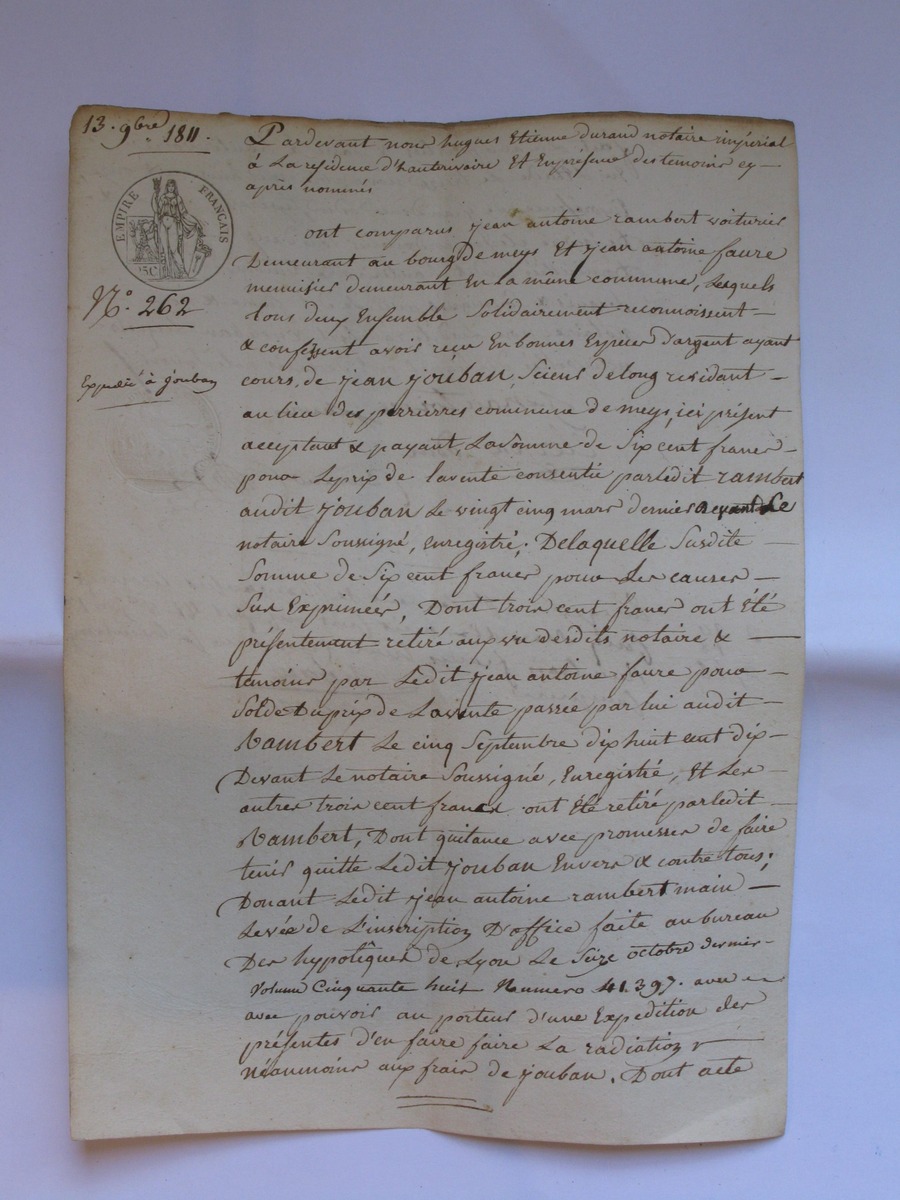 13. 9bre 1811.
EMPIRE FRANÇAIS
5C
N.° 262
Expedié à jouban
Pardevant nous hugues Etienne durand notaire impérial
à La résidence d'hauterivoire Et En présence des temoins cy-
après nommés
ont comparus jean antoine rambert voiturier
Demeurant au bourg de meys Et jean antoine faure
menuisier demeurant En la même commune, Lesquels
tous deux Ensemble Solidairement reconnoissent
& confessent avoir reçu En bonnes Espèces D'argent ayant
cours, de jean jouban, Scieur de long residant
au lieu des perrieres commune de meys, ici présent
acceptant & payant, La Somme de Six cent francs
pour Le prix de la vente consentie par ledit rambert
audit jouban Le vingt cinq mars dernier Le
notaire Soussigné, Enregistré; De laquelle Susdite
Somme de Six cent francs pour Les causes
Sus Exprimées, Dont trois cent francs ont Eté
présentement retiré aux vu desdits notaire &
temoins par Ledit jean antoine faure pour
Solde du prix de La vente passée par lui audit
Rambert Le cinq Septembre dix huit cent dix
Devant Le notaire Soussigné, Enregistré, Et Les
autres trois cent francs ont Eté retiré par ledit
Rambert, Dont quitance avec promesses de faire
tenir quitte Ledit jouban Envers & contre tous;
Donant Ledit jean antoine rambert main
Levée de L'inscription D'office faite au bureau
Des hypotêques de Lyon Le Seize octobre dernier
Volume Cinquante huit Numero 41.397. avec
avec pouvoir au porteur d'une Expedition des
présentes d'en faire faire La radiation
néanmoins aux frais de jouban. Dont acte